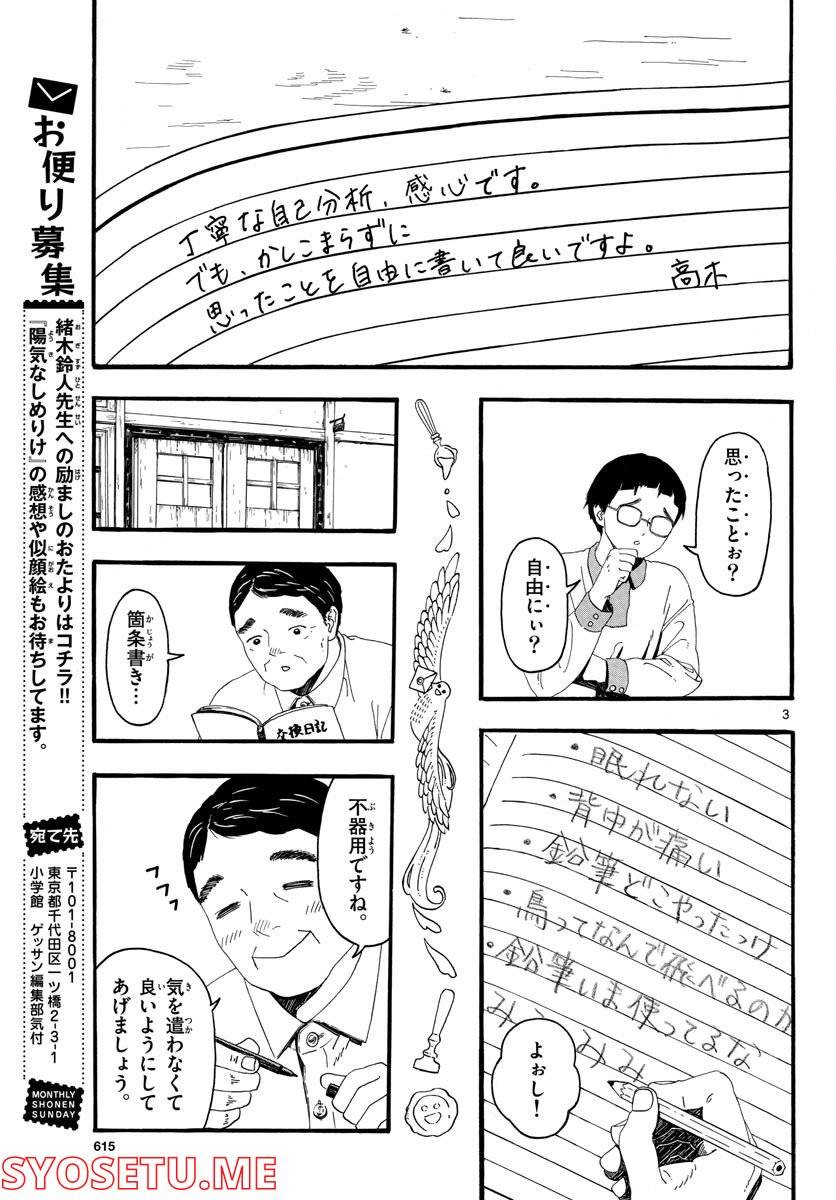 丁寧な自己分析、感心です。
でも、かしこまらずに
思ったことを自由に書いて良いですよ。
高木
思ったことぉ?
自由にぃ?
3
・眠れない
・背中が痛い
・鉛筆どこやったっけ
・鳥ってなんで飛べるのか
・鉛筆いま使ってるな
みみ
よぉし!
箇条書き…
かじょうが
交換日記
不器用ですね。
ぶきよう
気を遣わなくて
き つか
良いようにして
い
あげましょう。
615
お便り募集
緒木鈴人先生への励ましのおたよりはコチラ!!
お ぎ すず ひと せんせい はげ
『陽気なしめりけ』の感想や似顔絵もお待ちしてます。
ようき かんそう にがおえ ま
宛て先
〒101-8001
東京都千代田区一ツ橋2-3-1
小学館 ゲッサン編集部気付
MONTHLY
SHONEN
SUNDAY
SYOSETU.ME